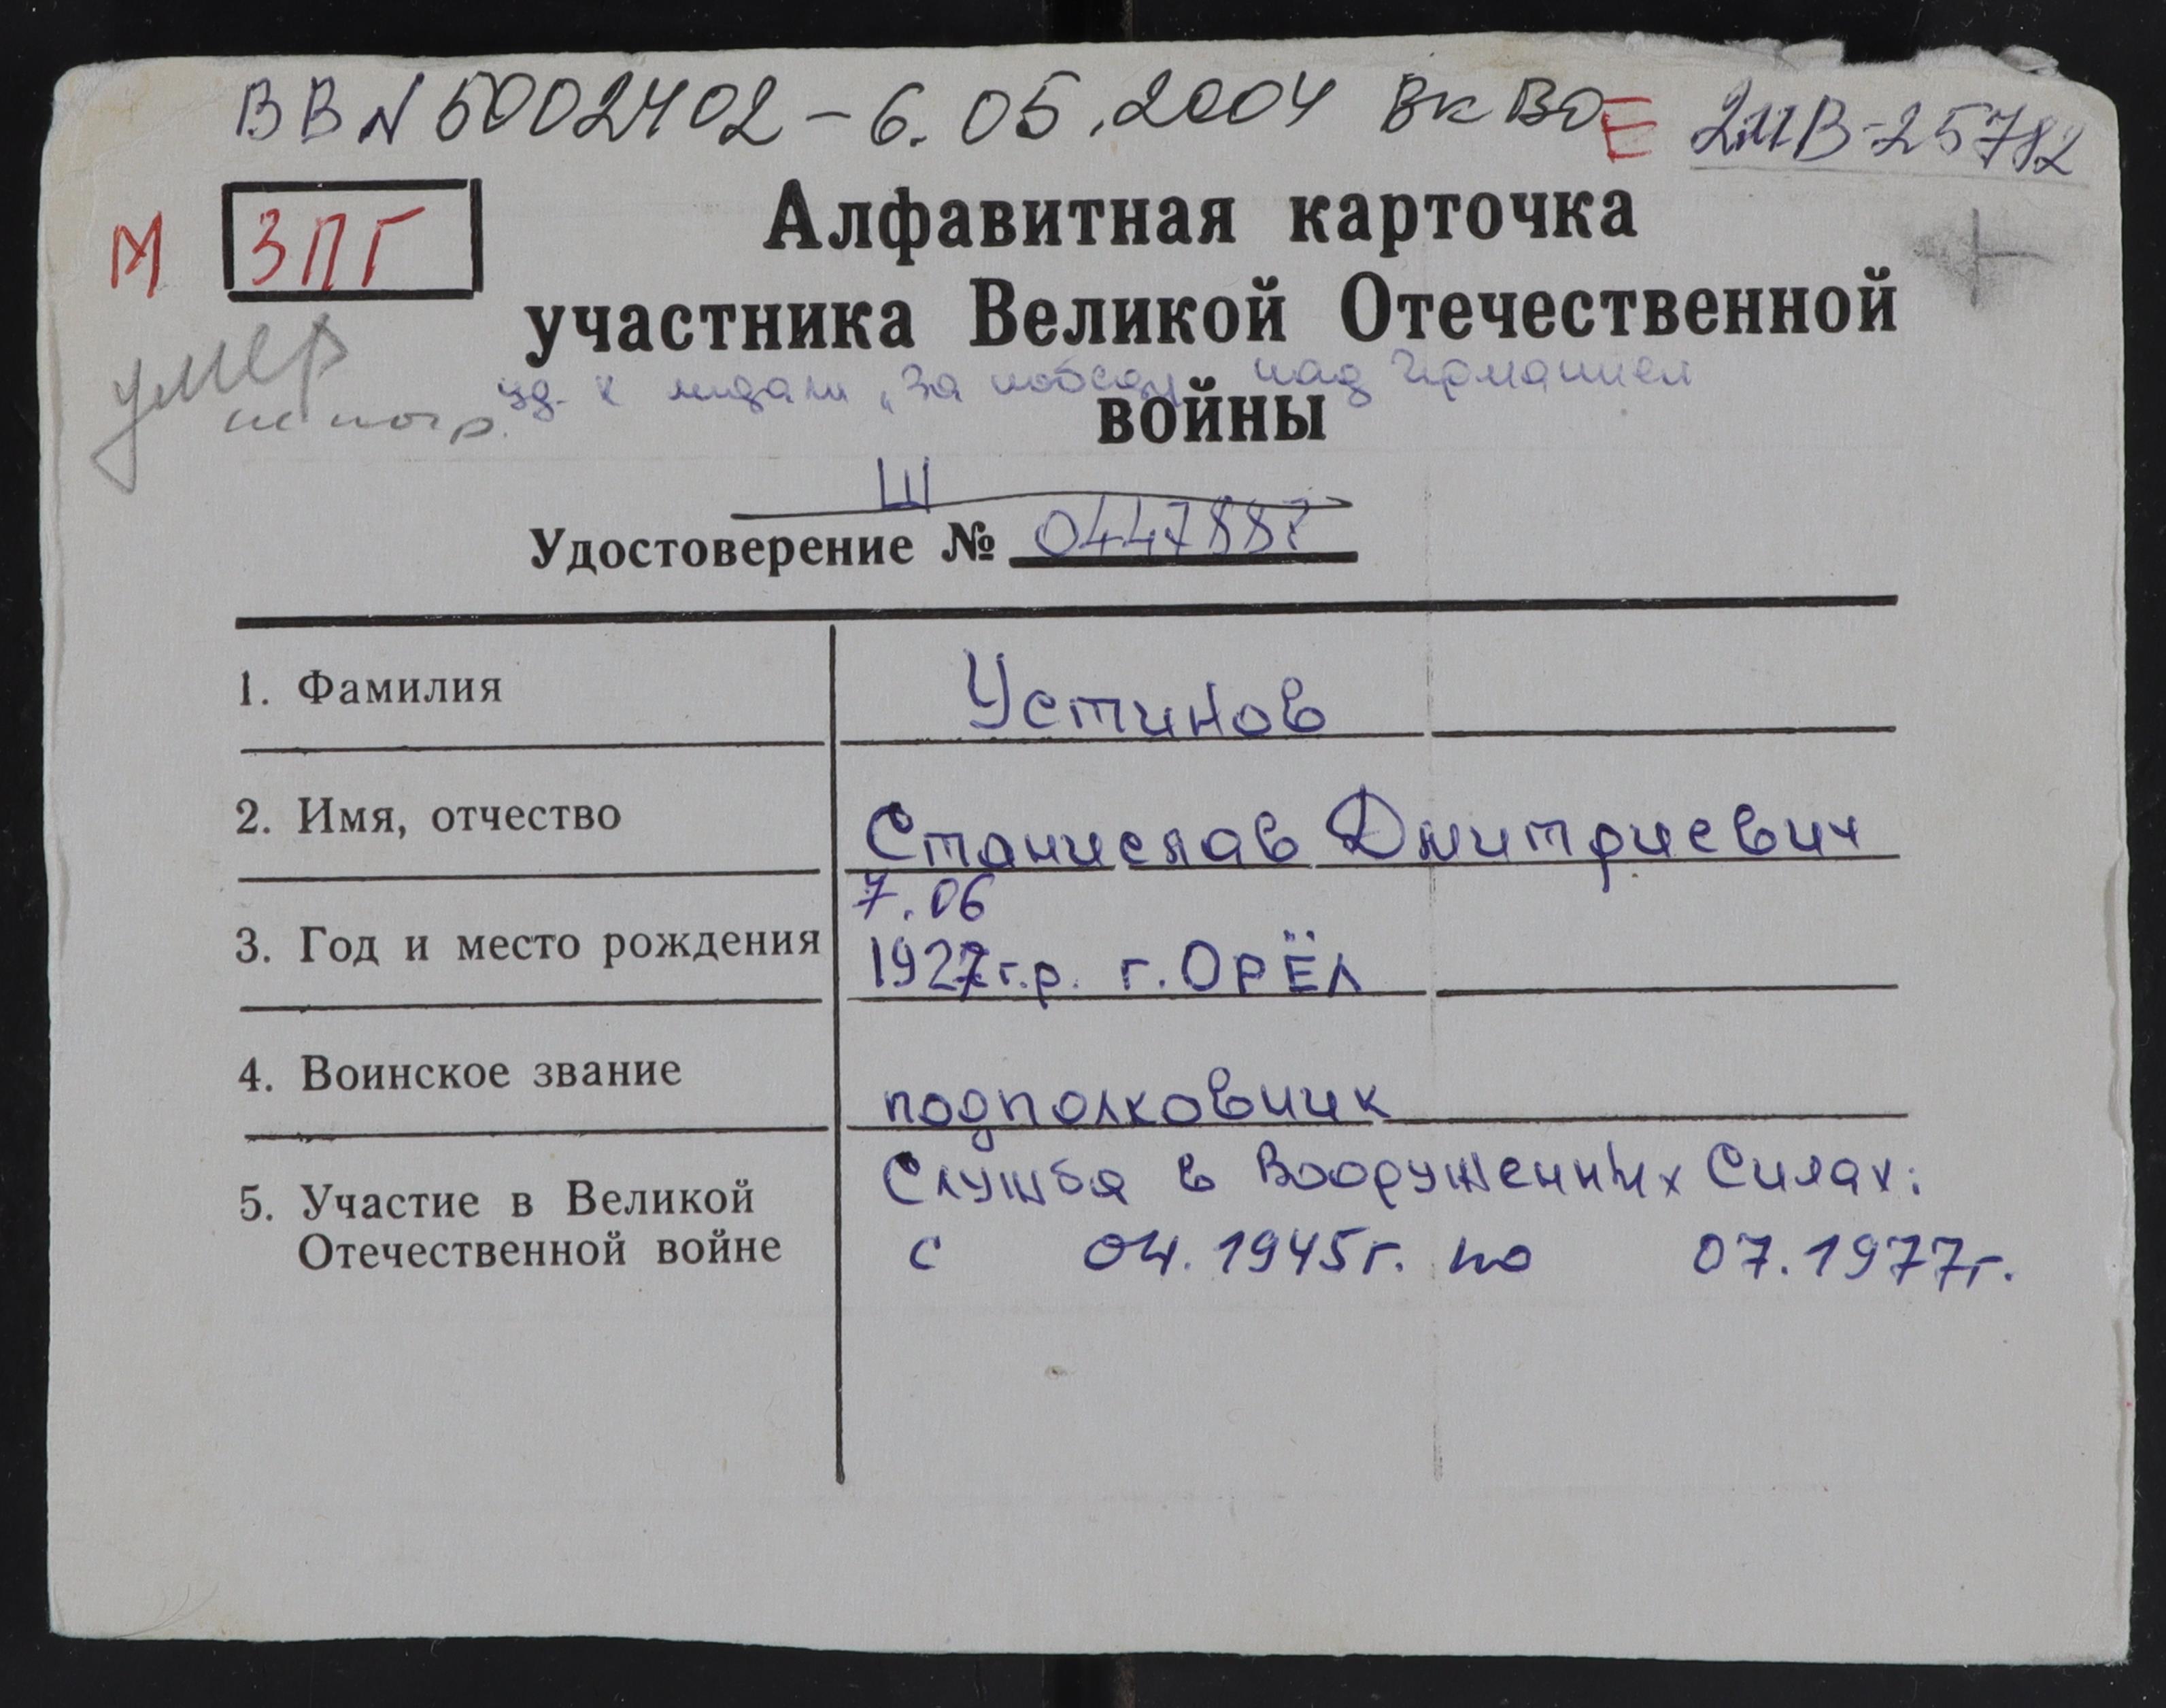 ВВ N 5002402 - 6.05.2004 ВК ВО Е
М ЗПГ
Алфавитная карточка
участника Великой Отечественной
умер
уд. к медали „За победу над Германией
войны
Ш
Удостоверение № 0447887
1. Фамилия Устинов
2. Имя, отчество Станислав Дмитриевич
7.06
3. Год и место рождения 1927 г.р. г. ОРЁЛ
4. Воинское звание подполковник
5. Участие в Великой Служба в Вооруженных Силах:
Отечественной войне с 04.1945г. по 07.1977г.